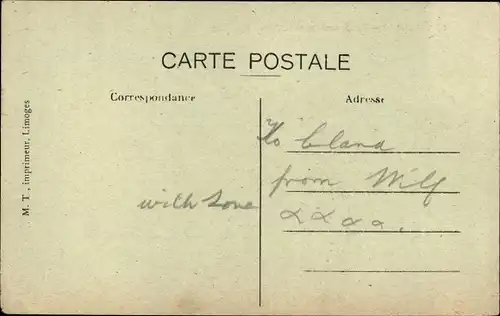 CARTE POSTALE
Correspondance
Adresse
M. T., imprimeur, Limoges
To Clara
from Wilf
with Love
xxxx.